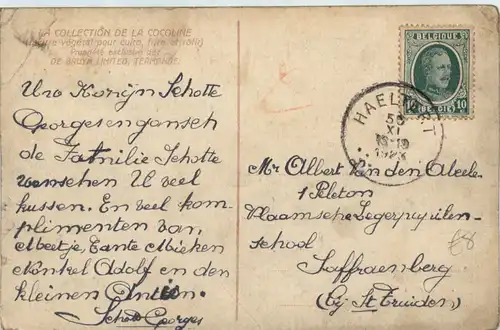 LA COLLECTION DE LA COCOLINE
végétal pour cuire, frire et rôtir
Propriété exclusive der
DE BRUYN LIMITED, TERMONDE.
Uw Kozijn Schotte
Georges en gansch
de Familie Schotte
wenschen U veel
kussen. En veel kom-
plimenten van,
Meetje, Tante Mieken
Nonkel Adolf en den
kleinen
Schotte Georges
BELGIQUE
10 BELGIË 10
HAELTERT
XI
1923
Mr Albert Van den Abeele
1 Peleton
Vlaamsche Legerpupillen-
school
Saffraenberg
(bij St Truiden)